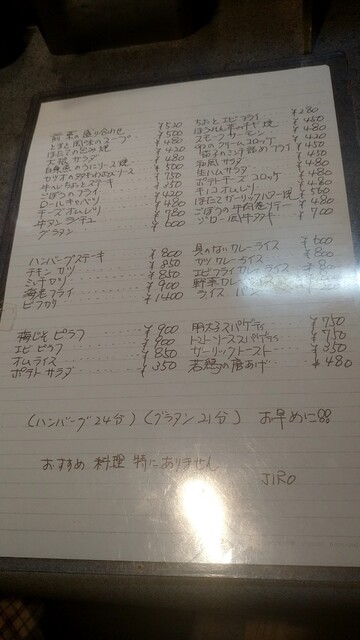 前菜の盛り合わせ ¥520
とまと風味のスープ ¥500
ほたての包み焼 ¥480
大根サラダ ¥420
白身魚のうにソース焼 ¥480
¥500
牛ヒレちょとステーキ ¥750
ごぼうのフライ ¥350
ロールキャベツ ¥420
チーズオムレツ ¥480
牛タンシチュー ¥780
グラタン ¥600
ちょっとエビフライ ¥280
ほうれん草の 焼 ¥450
スモークサーモン ¥480
クリームコロッケ ¥420
茄子のミンチ詰めフライ ¥450
和風サラダ
生ハムサラダ ¥480
ポテトチーズコロッケ
キノコオムレツ
ほたてガーリックバター焼
ごぼうの牛肉巻ソテー ¥480
ジロー風牛タタキ ¥700
ハンバーグステーキ ¥800
チキンカツ ¥850
ミックスカツ ¥850
海老フライ ¥900
ビフカツ ¥1400
具のないカレーライス ¥600
カツカレーライス ¥800
エビフライカレーライス
野菜カレー
ライス パン
梅じそピラフ ¥900
エビピラフ ¥900
オムライス ¥850
ポテトサラダ ¥350
明太子スパゲティ ¥750
トマトソーススパゲティ ¥750
ガーリックトースト ¥350
若鶏の唐あげ ¥480
(ハンバーグ24分) (グラタン21分) お早めに!!
おすすめ 料理 特にありません
JIRO